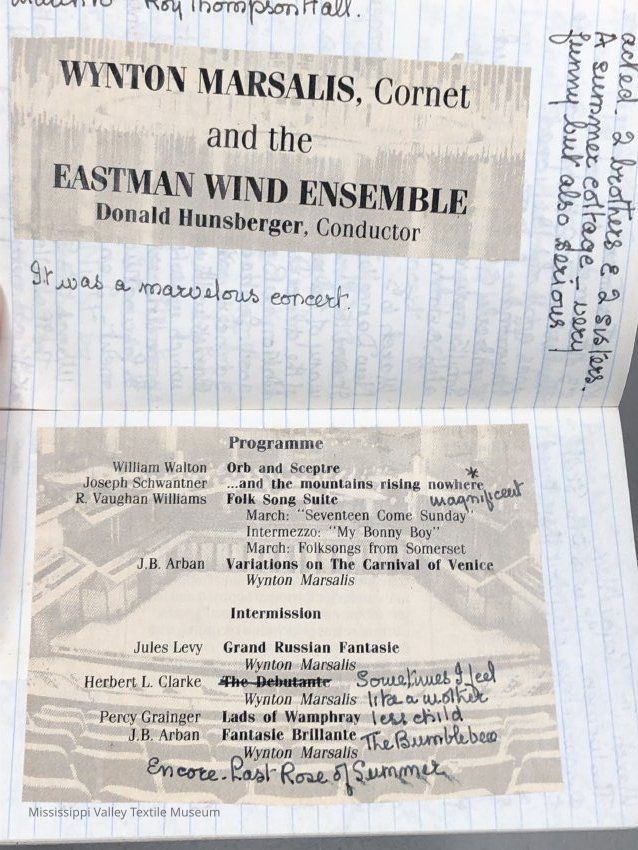 Roy Thompson Hall.
WYNTON MARSALIS, Cornet
and the
EASTMAN WIND ENSEMBLE
Donald Hunsberger, Conductor
It was a marvelous concert.
acted. 2 brothers & 2 sisters.
A summer cottage – very
funny but also serious!
Programme
William Walton Orb and Sceptre
Joseph Schwantner ...and the mountains rising nowhere *
R. Vaughan Williams Folk Song Suite magnificent
March: "Seventeen Come Sunday"
Intermezzo: "My Bonny Boy"
March: Folksongs from Somerset
J.B. Arban Variations on The Carnival of Venice
Wynton Marsalis
Intermission
Jules Levy Grand Russian Fantasie
Wynton Marsalis
Herbert L. Clarke The Debutante Sometimes I feel
Wynton Marsalis like a mother
Percy Grainger Lads of Wamphray less child
J.B. Arban Fantasie Brillante The Bumblebee
Wynton Marsalis
Encore. Last Rose of Summer
Mississippi Valley Textile Museum